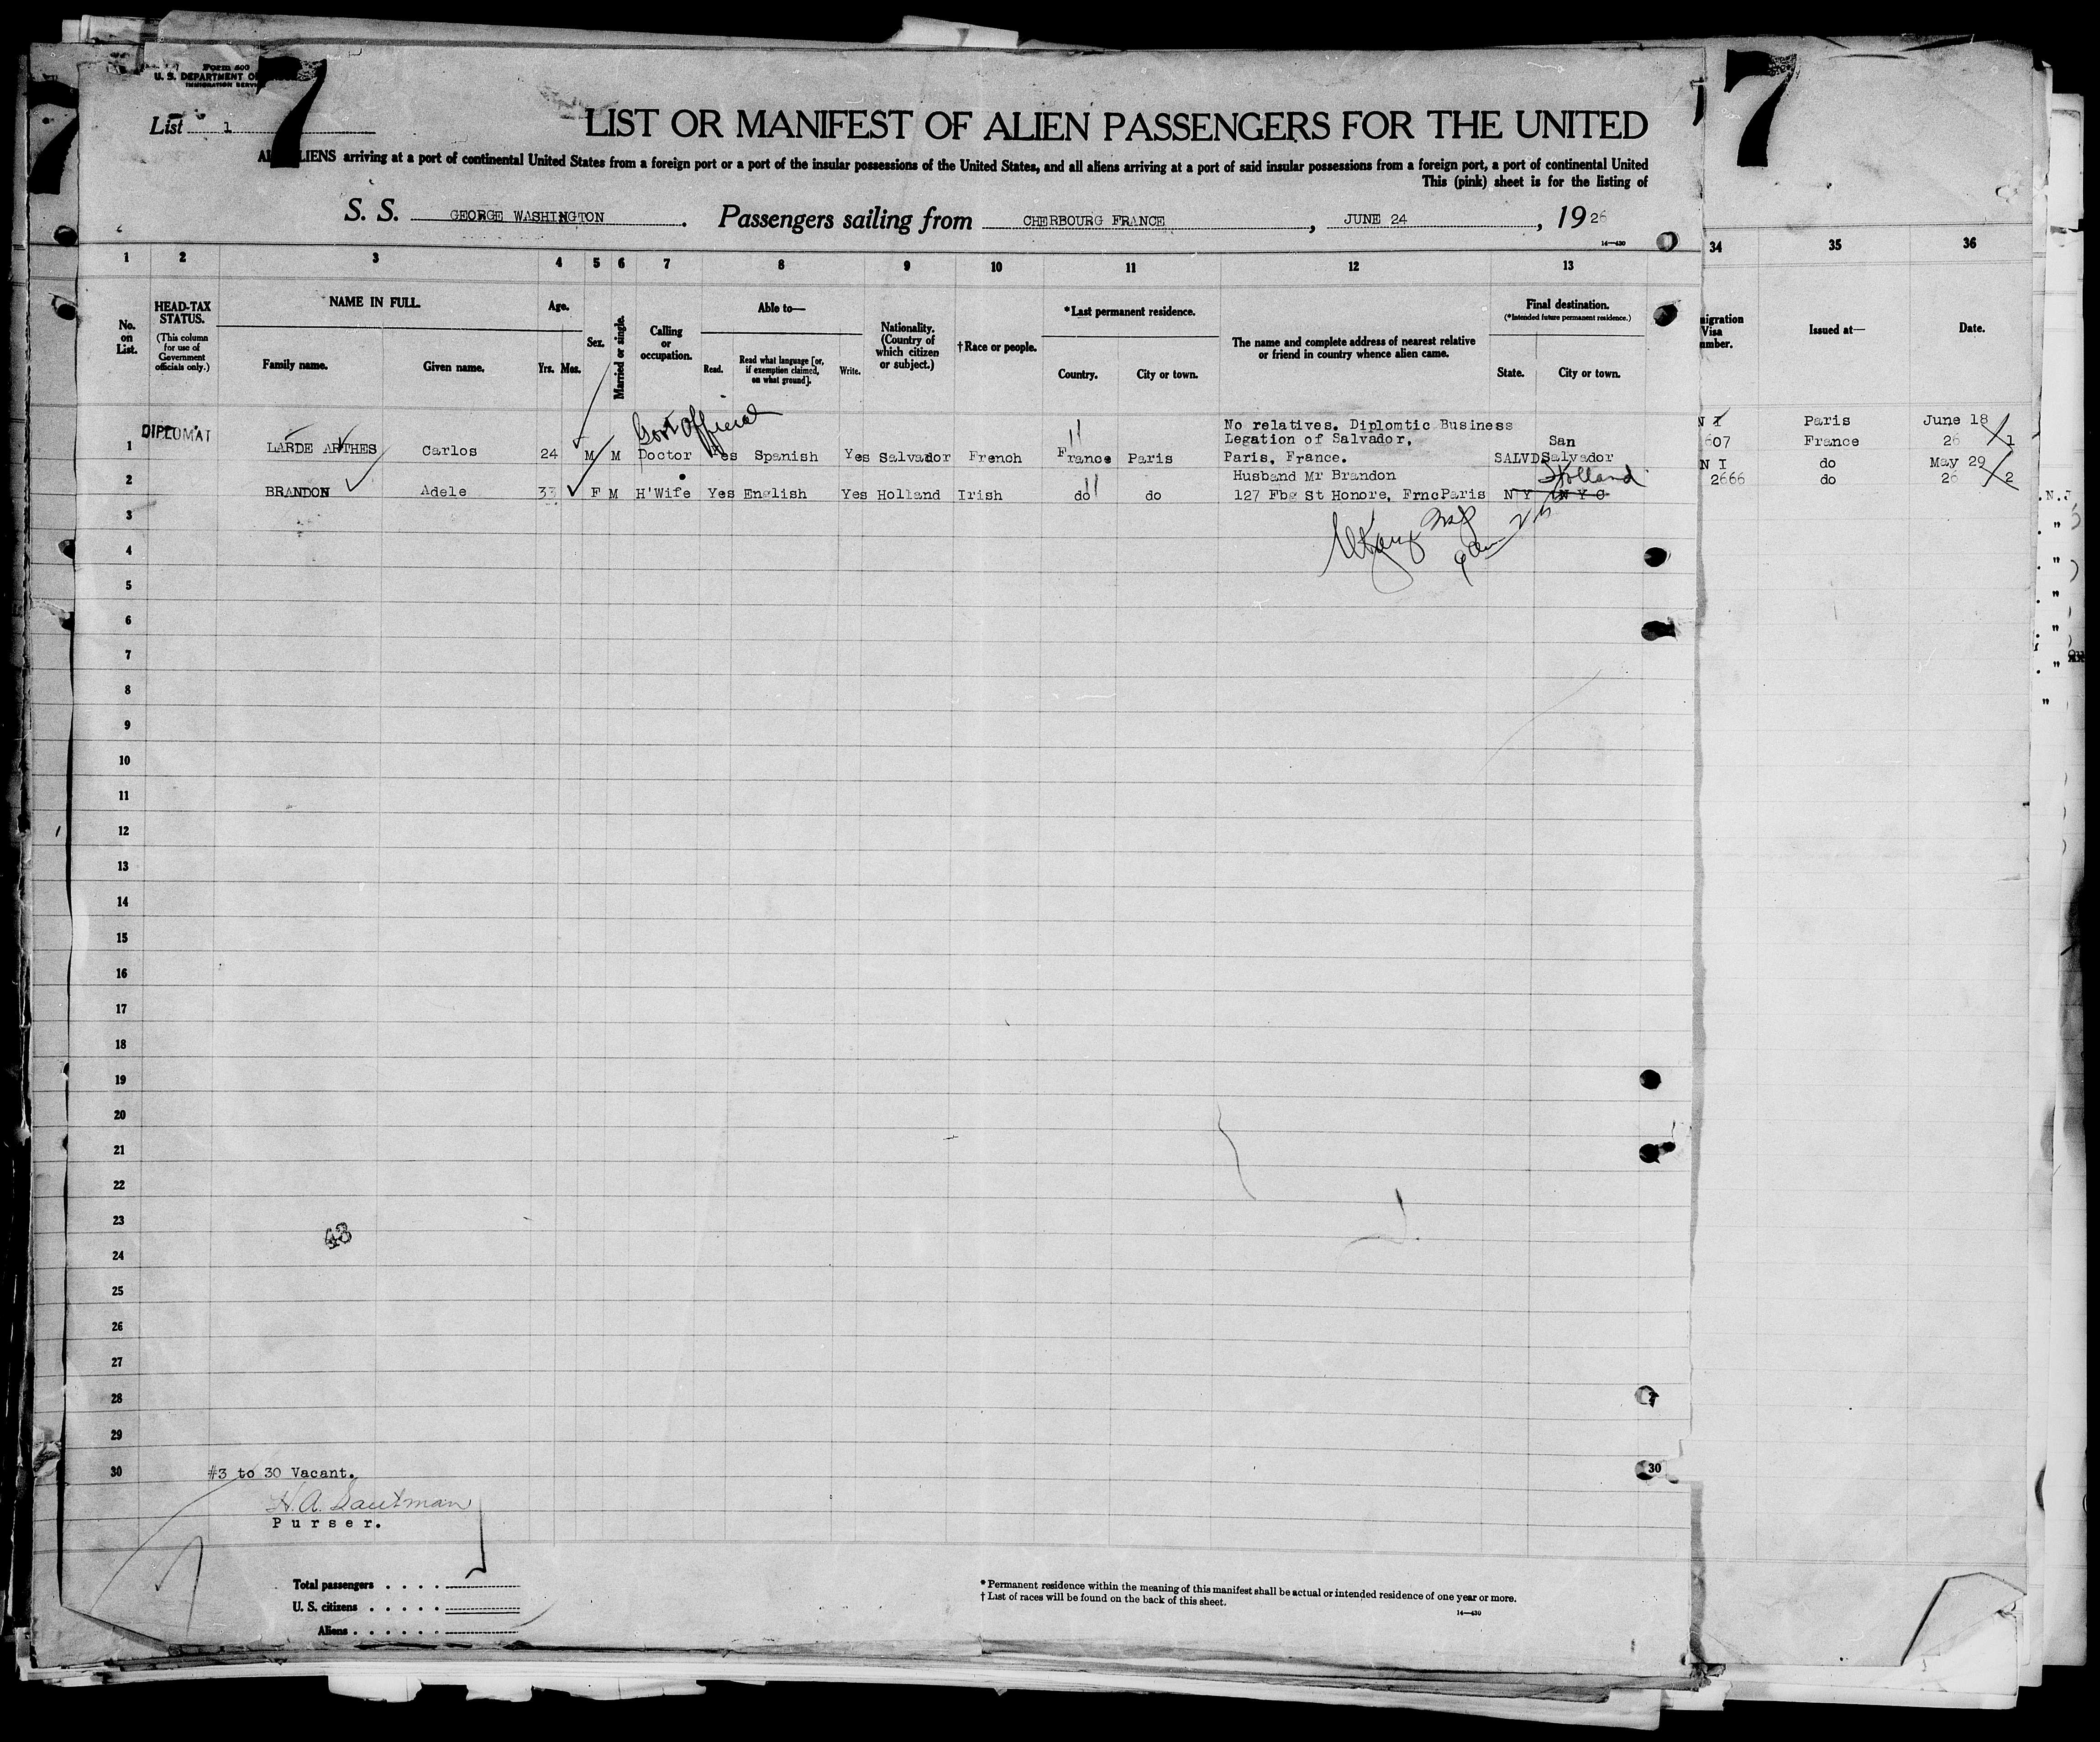 7
7
Form 500
U. S. DEPARTMENT OF
IMMIGRATION SERVICE
List 1
LIST OR MANIFEST OF ALIEN PASSENGERS FOR THE UNITED
ALL ALIENS arriving at a port of continental United States from a foreign port or a port of the insular possessions of the United States, and all aliens arriving at a port of said insular possessions from a foreign port, a port of continental United
This (pink) sheet is for the listing of
S. S. GEORGE WASHINGTON. Passengers sailing from CHERBOURG FRANCE, JUNE 24, 1926
14—430
1 2 3 4 5 6 7 8 9 10 11 12 13 34 35 36
No. on List.
HEAD-TAX STATUS.
(This column for use of Government officials only.)
NAME IN FULL.
Family name. Given name.
Age.
Yrs. Mos.
Sex.
Married or single.
Calling or occupation.
Able to—
Read. Read what language [or, if exemption claimed, on what ground]. Write.
Nationality. (Country of which citizen or subject.)
†Race or people.
*Last permanent residence.
Country. City or town.
The name and complete address of nearest relative or friend in country whence alien came.
Final destination.
(*Intended future permanent residence.)
State. City or town.
migration Visa umber.
Issued at—
Date.
Gov't Official
No relatives. Diplomtic Business
Legation of Salvador, San
DIPLOMAT
1 LARDE ARTHES Carlos 24 M M Doctor Yes Spanish Yes Salvador French France Paris Paris, France. SALVD Salvador
N I Paris June 18
607 France 26 1
Husband Mr Brandon Holland
2 BRANDON Adele 33 F M H'Wife Yes English Yes Holland Irish do do 127 Fbg St Honore, Frnc Paris N Y N Y C
N I do May 29
2666 do 26 2
3
4
5
6
7
8
9
10
11
12
13
14
15
16
17
18
19
20
21
22
23
43
24
25
26
27
28
29
30 #3 to 30 Vacant. 30
H. A. Sautman
Purser.
Total passengers
U. S. citizens
Aliens
* Permanent residence within the meaning of this manifest shall be actual or intended residence of one year or more.
† List of races will be found on the back of this sheet.
14—430